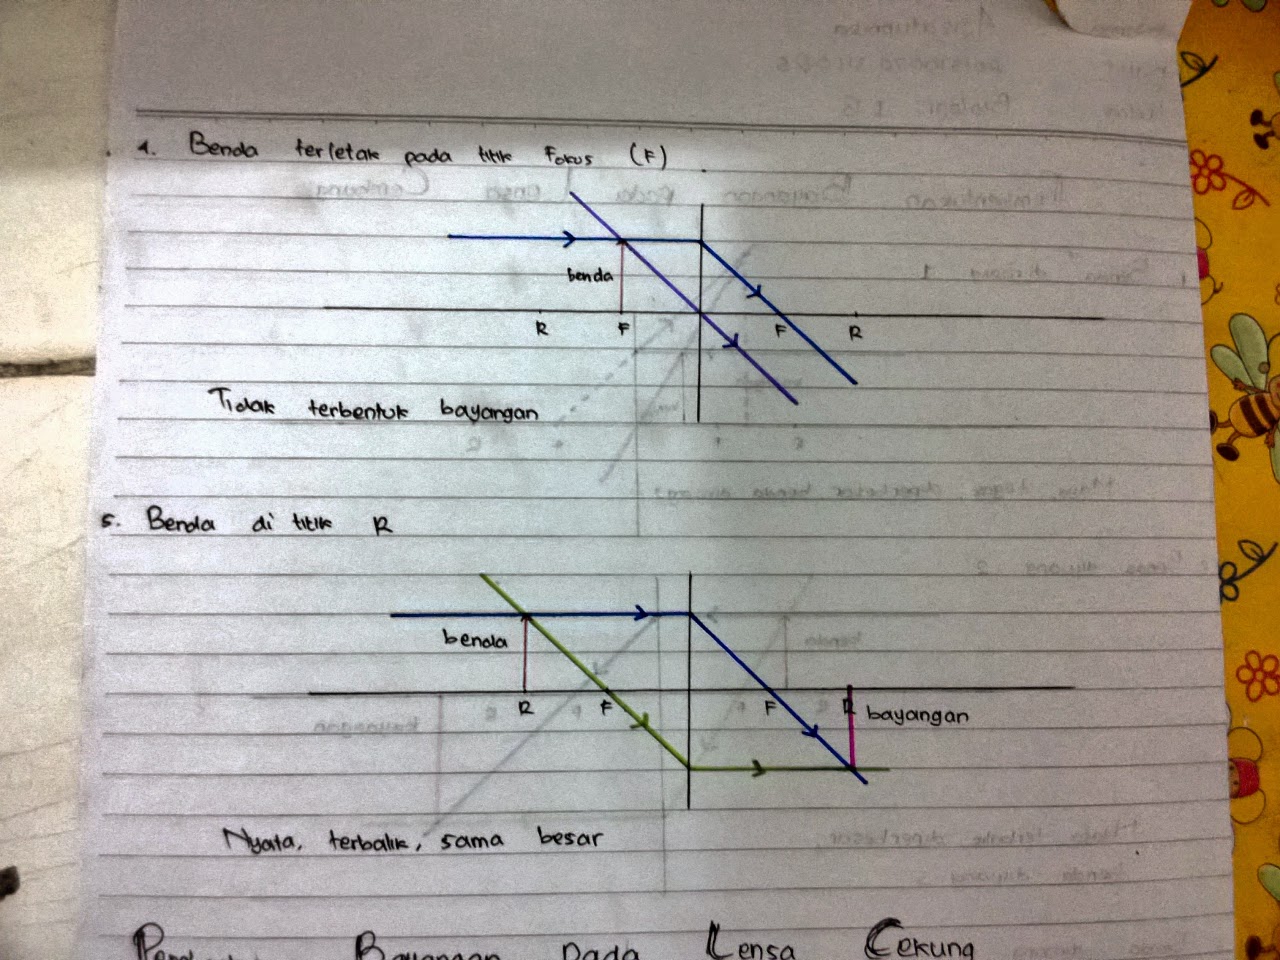 4. Benda terletak pada titik Fokus (F)
benda
R F F R
Tidak terbentuk bayangan
5. Benda di titik R
benda
R F F R bayangan
Nyata, terbalik, sama besar
Bayangan Pada Lensa Cekung